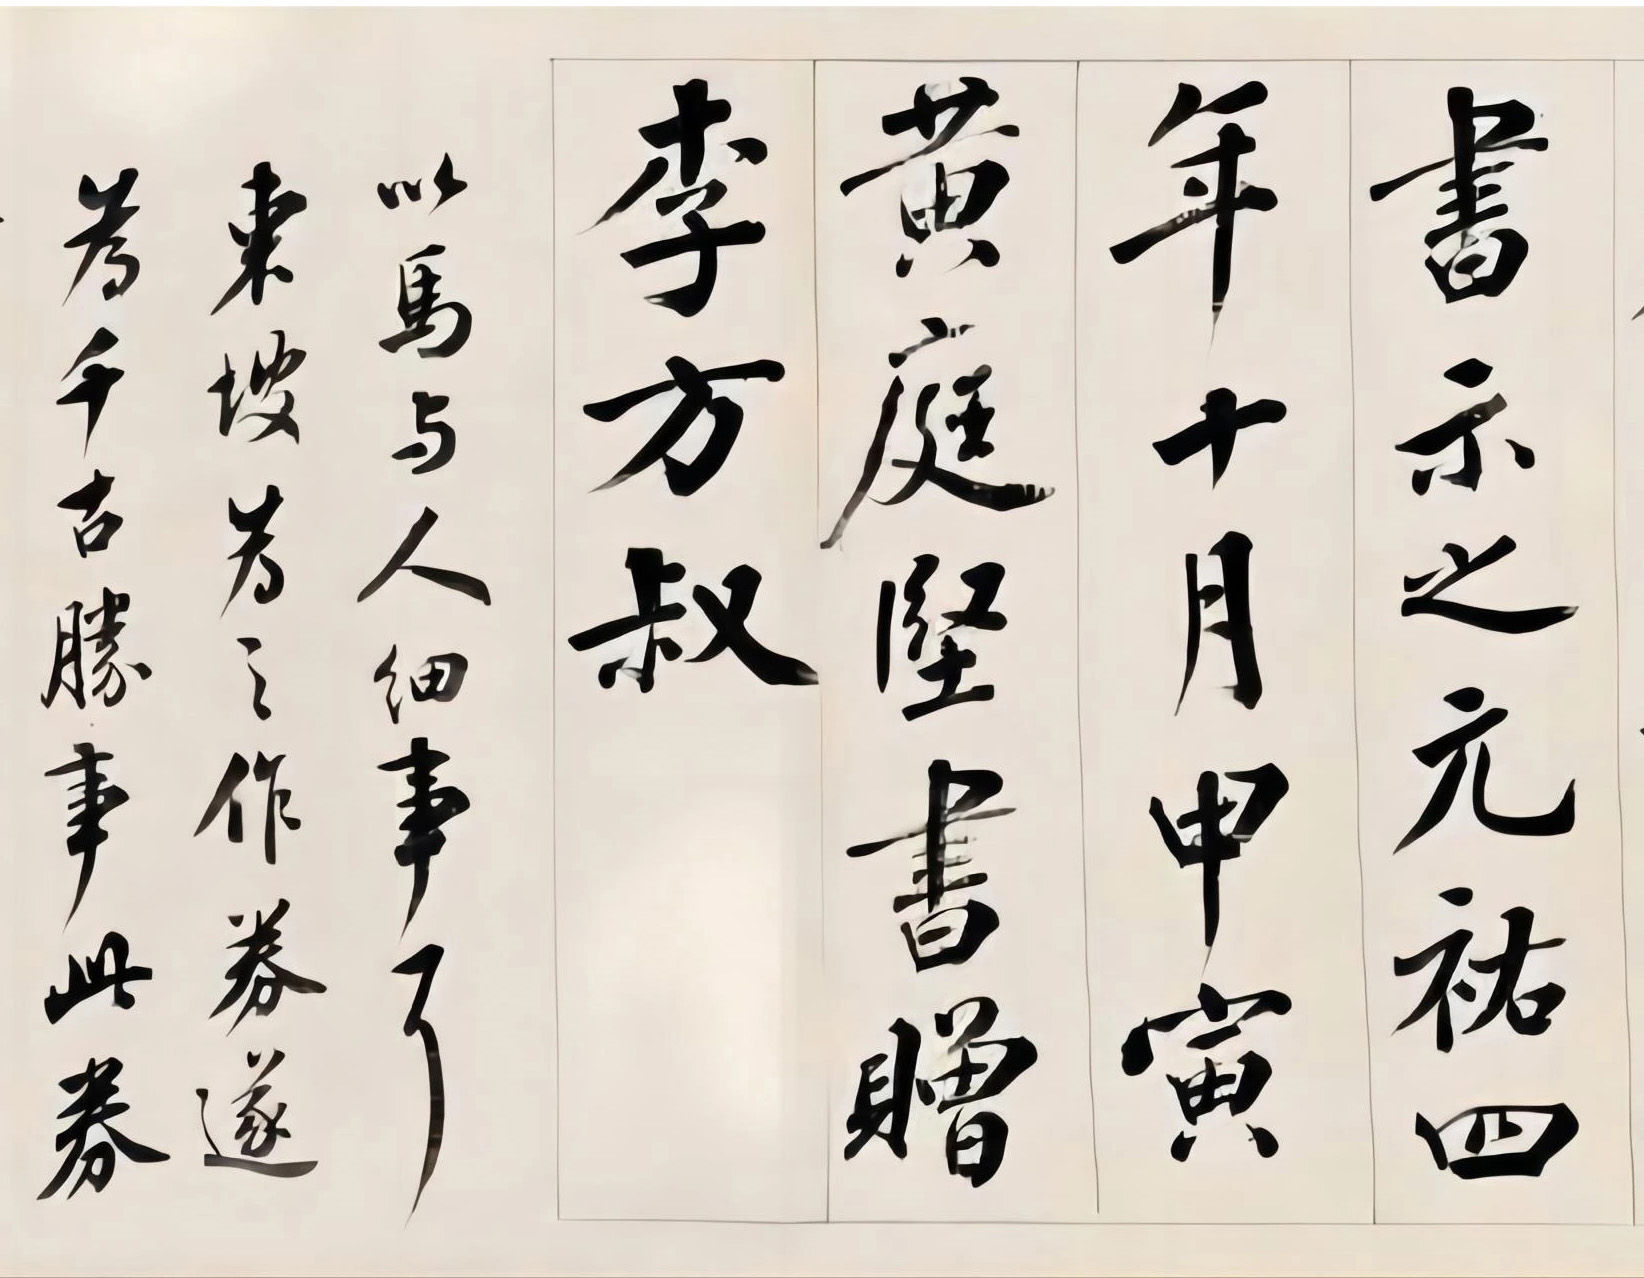 書示之元祐四
年十月甲寅
黄庭堅書贈
李方叔
以馬与人細事了
東坡为之作券遂
为千古勝事此券